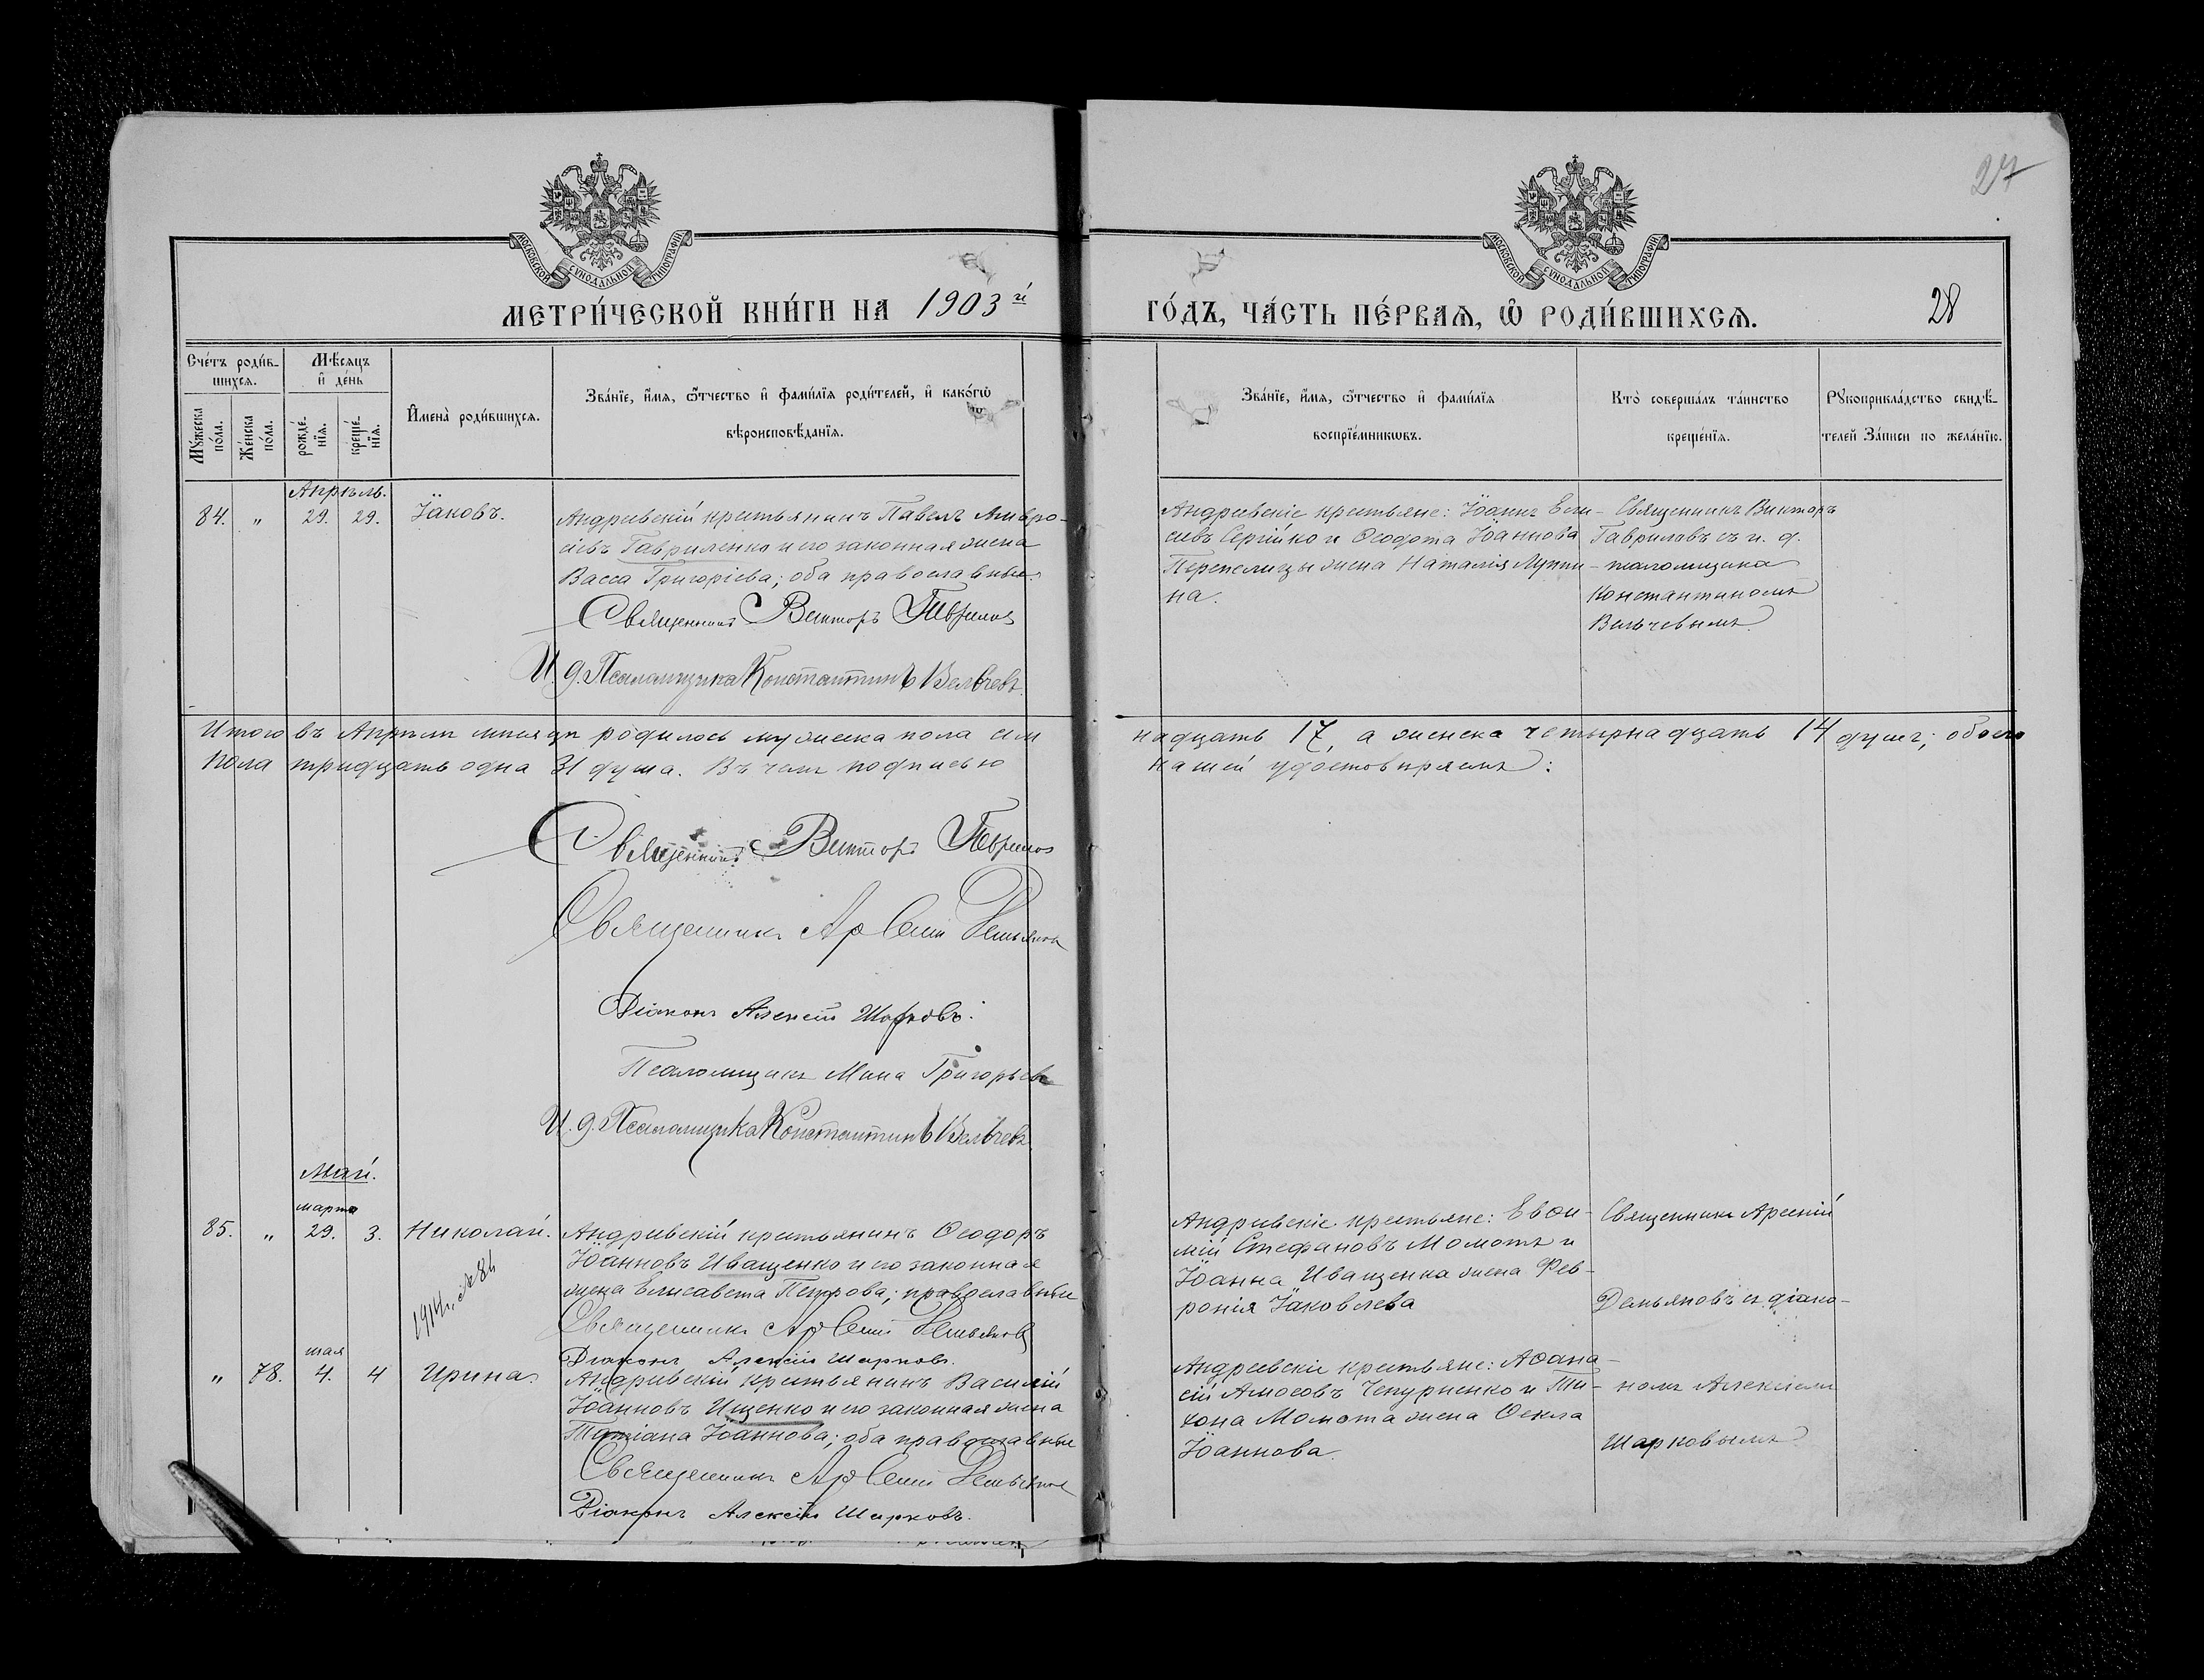 27
МОСКОВСКОЙ СѴНОДАЛЬНОЙ ТИПОГРАФІИ
МОСКОВСКОЙ СѴНОДАЛЬНОЙ ТИПОГРАФІИ
МЕТРИ́ЧЕСКОЙ КНИ́ГИ НА 1903й
ГО́ДЪ, ЧА́СТЬ ПЕ́РВАѦ, Ѡ҆ РОДИ́ВШИХСѦ.
28
Сче́тъ роди́в-
шихсѧ.
Мꙋ́жеска по́ла.
Же́нска по́ла.
Мѣ́сѧцъ
и҆ де́нь
рожде́-
нїѧ.
креще́-
нїѧ.
И҆мена̀ роди́вшихсѧ.
Зва́нїе, и҆́мѧ, ѻ҆́тчество и҆ фами́лїѧ роди́телей, и҆ како́гѡ
вѣроисповѣ́данїѧ.
Зва́нїе, и҆́мѧ, ѻ҆́тчество и҆ фами́лїѧ
воспрїе́мникѡвъ.
Кто̀ соверша́лъ та́инство
креще́нїѧ.
Рꙋкоприкла́дство свидѣ́-
телей За́писи по жела́нїю.
Апрѣль.
84. „ 29. 29. Іаковъ.
Андреевскій крестьянинъ Павелъ Амвро-
сіевъ Гавриленко и его законная жена
Васса Григоріева; оба православные.
Священникъ Викторъ Гаврилов
И. д. Псаломщика Константинъ Вельчевъ.
Андреевскіе крестьяне: Іоаннъ Еви-
сіевъ Сергійко и Ѳеодота Іоаннова
Перепелицы жена Наталія Луппи-
на.
Священникъ Викторъ
Гавриловъ съ и. д.
псаломщика
Константиномъ
Вельчевымъ.
Итого въ Апрѣлѣ мѣсяцѣ родилось мужеска пола сем
надцать 17, а женска четырнадцать 14 душъ; обоего
пола тридцать одна 31 душа. Въ чемъ подписью
нашей удостовѣряемъ:
Священникъ Викторъ Гаврилов
Священникъ Арсеній Демьянов
Діаконъ Алексій Шарковъ.
Псаломщикъ Мина Григорьевъ
И. д. Псаломщика Константинъ Вельчевъ.
Май.
марта
85. „ 29. 3. Николай.
1914г. №86
Андреевскій крестьянинъ Ѳеодоръ
Іоанновъ Иващенко и его законная
жена Елисавета Петрова; православные
Священникъ Арсеній Демьянов
Діаконъ Алексій Шарковъ.
Андреевскіе крестьяне: Евѳи-
мій Стефановъ Момотъ и
Іоанна Иващенка жена Фев-
ронія Іаковлева
Священникъ Арсеній
Демьяновъ съ діако-
мая
„ 78. 4. 4 Ирина.
Андреевскій крестьянинъ Василій
Іоанновъ Ищенко и его законная жена
Татіана Іоаннова; оба православные
Священникъ Арсеній Демьянов
Діаконъ Алексій Шарковъ.
Андреевскіе крестьяне: Аѳана-
сій Амосовъ Чепурненко и Ти-
хона Момота жена Ѳекла
Іоаннова.
номъ Алексіемъ
Шарковымъ